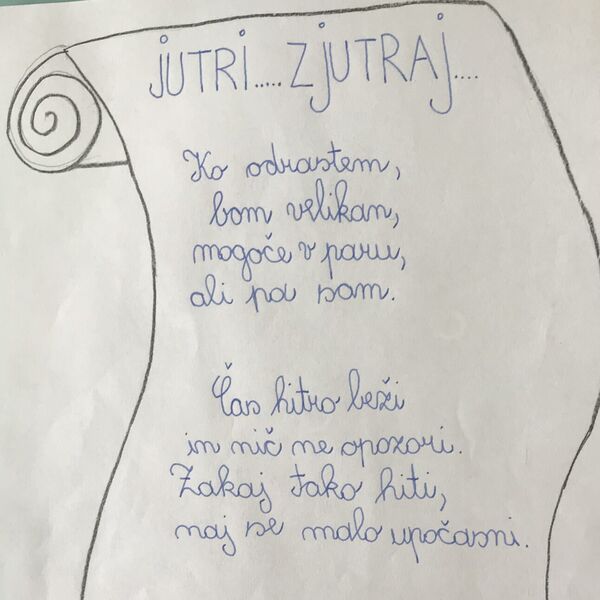 JUTRI..... ZJUTRAJ....
Ko odrastem,
bom velikan,
mogoče v paru,
ali pa sam.
Čas hitro beži
in nič ne opozori.
Zakaj tako hiti,
naj se malo upočasni.